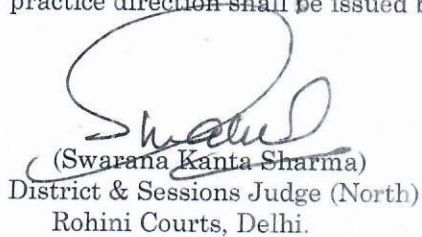 practice direction shall be issued b
(Swarana Kanta Sharma)
District & Sessions Judge (North)
Rohini Courts, Delhi.